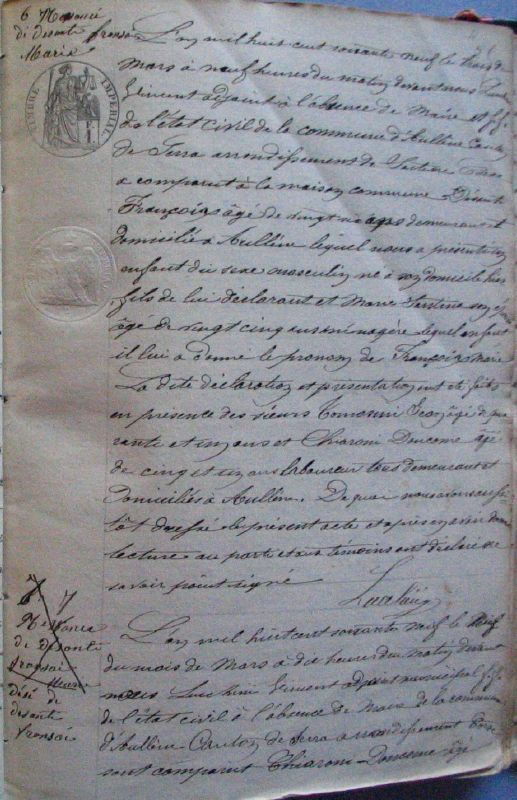 6 Naissance
di desanti fransoi
Marie
TIMBRE IMPERIAL
L'an mil huit cent soixante neuf le huit de
Mars à neuf heures du matin devant nous
adjoint à l'absence de Maire et ff
de l'état civil de la commune d'Aullène Canton
de Serra arrondissement de Sartène Corse
a comparu à la maison commune Désanti
François âgé de vingt six ans demeurant et
domicilié à Aullène lequel nous a présenté un
enfant du sexe masculin né à son domicile hier
fils de lui déclarant et Marie son épouse
âgé de vingt cinq ans ménagère lequel enfant
il lui a donné le prenom de François Marie
La dite déclaration et présentation ont été faites
en présence des sieurs Tomasini âgé de qua
rante et un ans et Chiaroni Doucome âgé
de cinq et un ans laboureur tous demeurant et
domiciliés à Aullène. De quoi nous avons aussi
tôt dressé le présent acte et après en avoir donné
lecture au partie et aux témoins ont déclaré ne
savoir point signé
6 7
Naissance
di desanti
fransoi
Marie
Désé de
desanti
fransoi
L'an mil huit cent soixante neuf le Neuf
du mois de Mars à dix heures du matin devant
nous adjoint municipal ff
de l'état civil à l'absence de Maire de la commune
d'Aullène Canton de Serra arrondissement Corse
sont comparut Chiaroni Doucome âgé